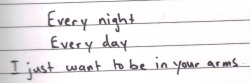 Every night
Every day
I just want to be in your arms